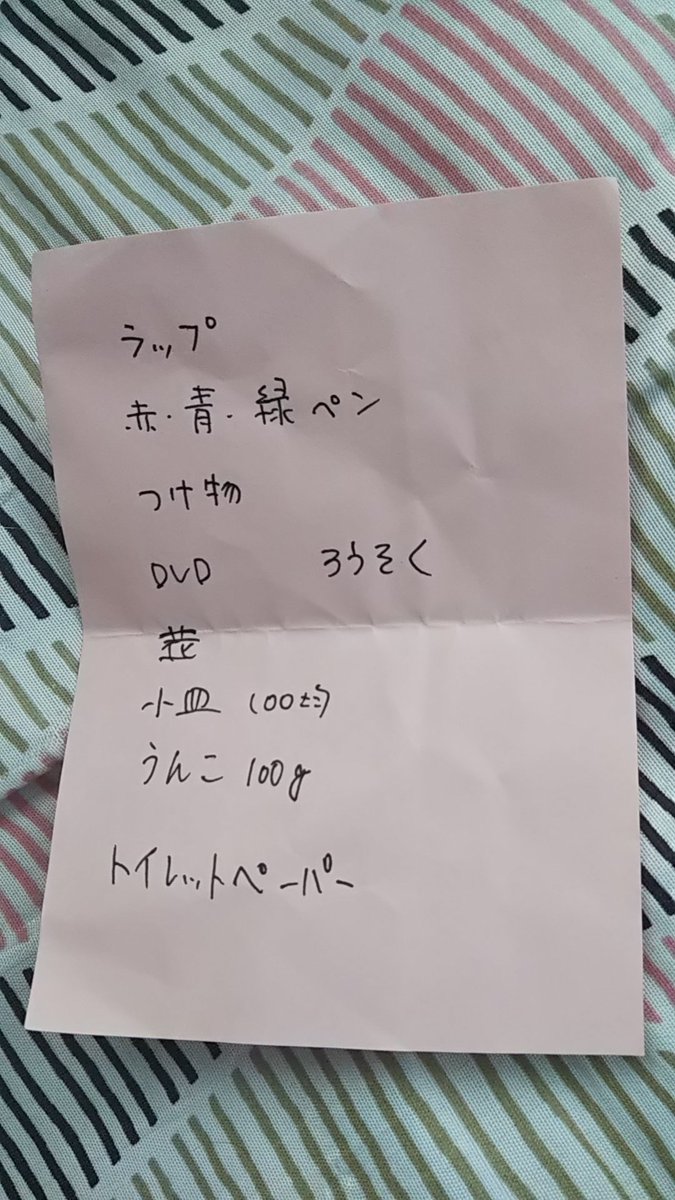 ラップ
赤・青・緑 ペン
つけ物
DVD ろうそく
花
小皿 100均
うんこ 100g
トイレットペーパー